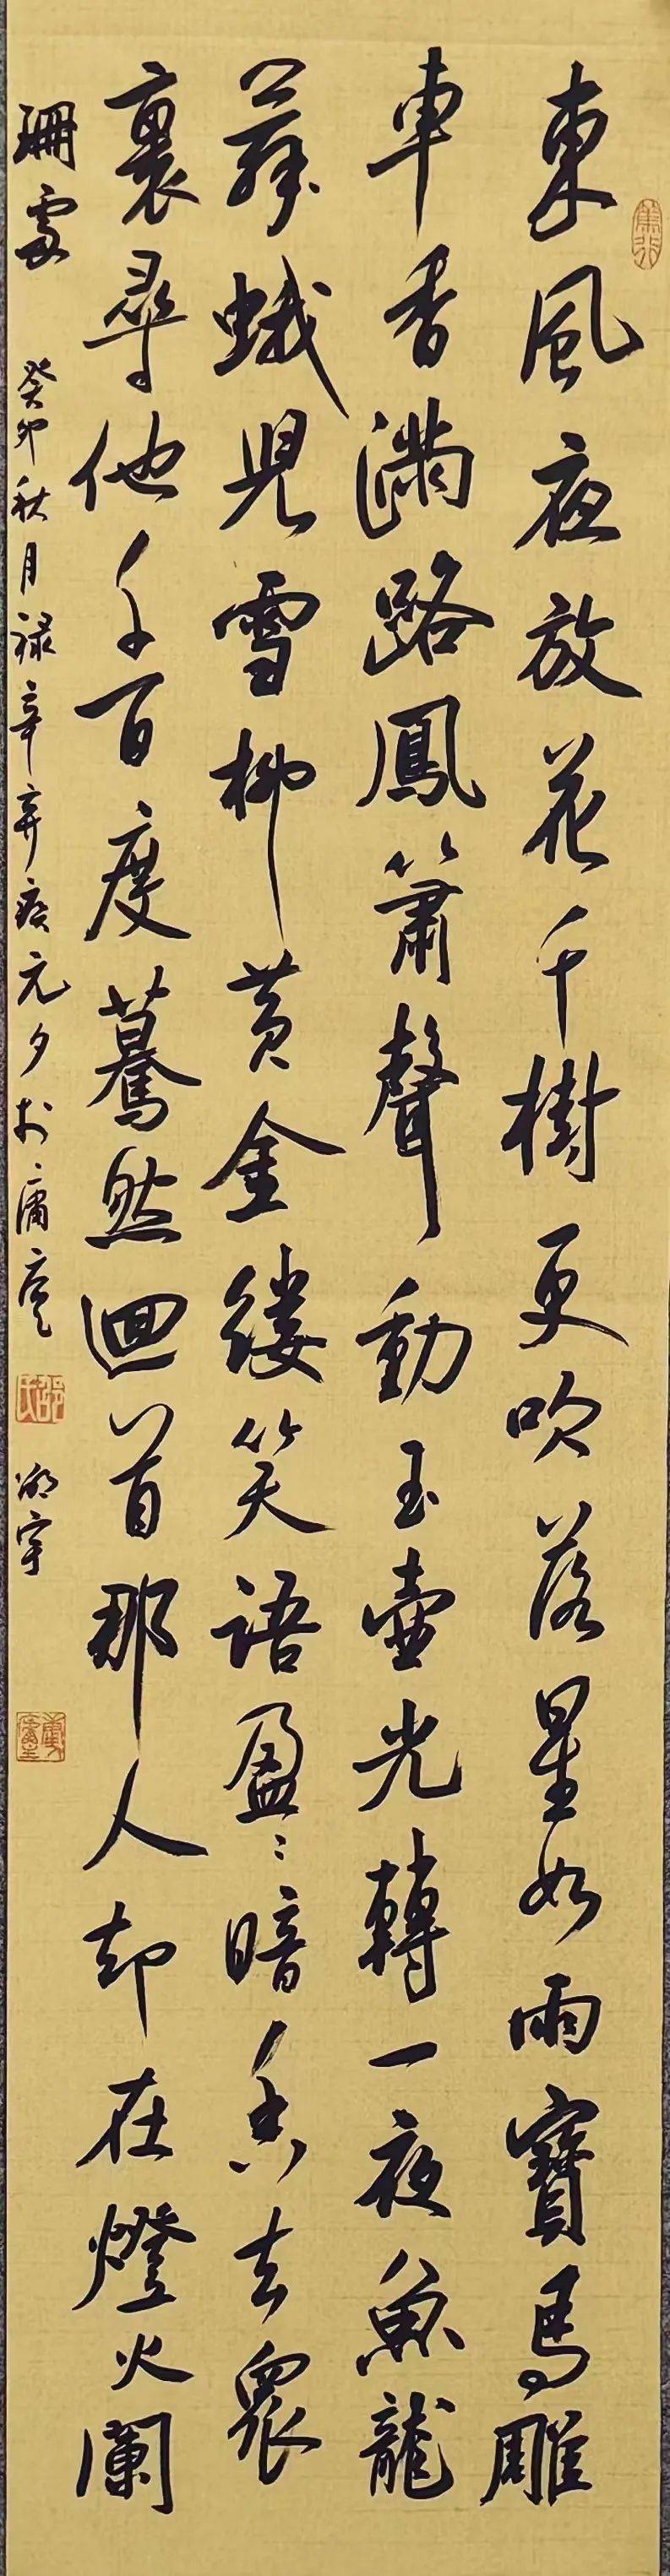 東風夜放花千樹更吹落星如雨寶馬雕
車香滿路鳳簫聲動玉壺光轉一夜魚龍
舞蛾兒雪柳黃金縷笑語盈〻暗香去衆
裏尋他千百度驀然迴首那人却在燈火闌
珊處 癸卯秋月禄辛弃疾元夕於